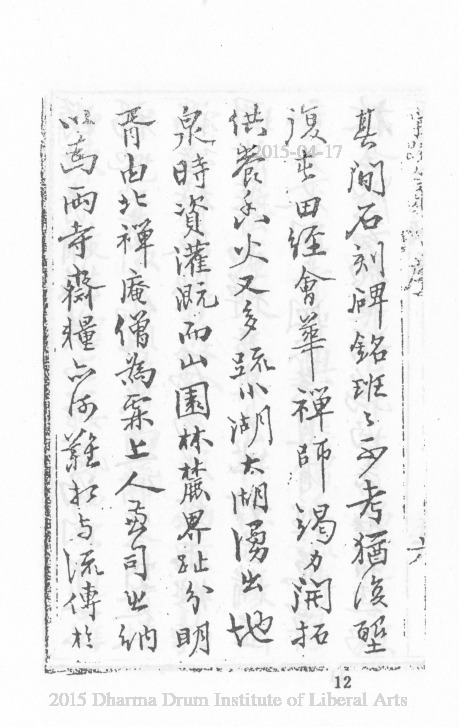 其間石刻碑銘班〻可考猶
復屯田經會華禪師竭力開拓
供養香火又多疏小湖大湖湧出地
泉時資灌溉而山園林麓界址分明
胥由北禪庵僧為霖上人兼司出納
以為兩寺齋糧亦何難与流傳於
2015-04-17
12
2015 Dharma Drum Institute of Liberal Arts